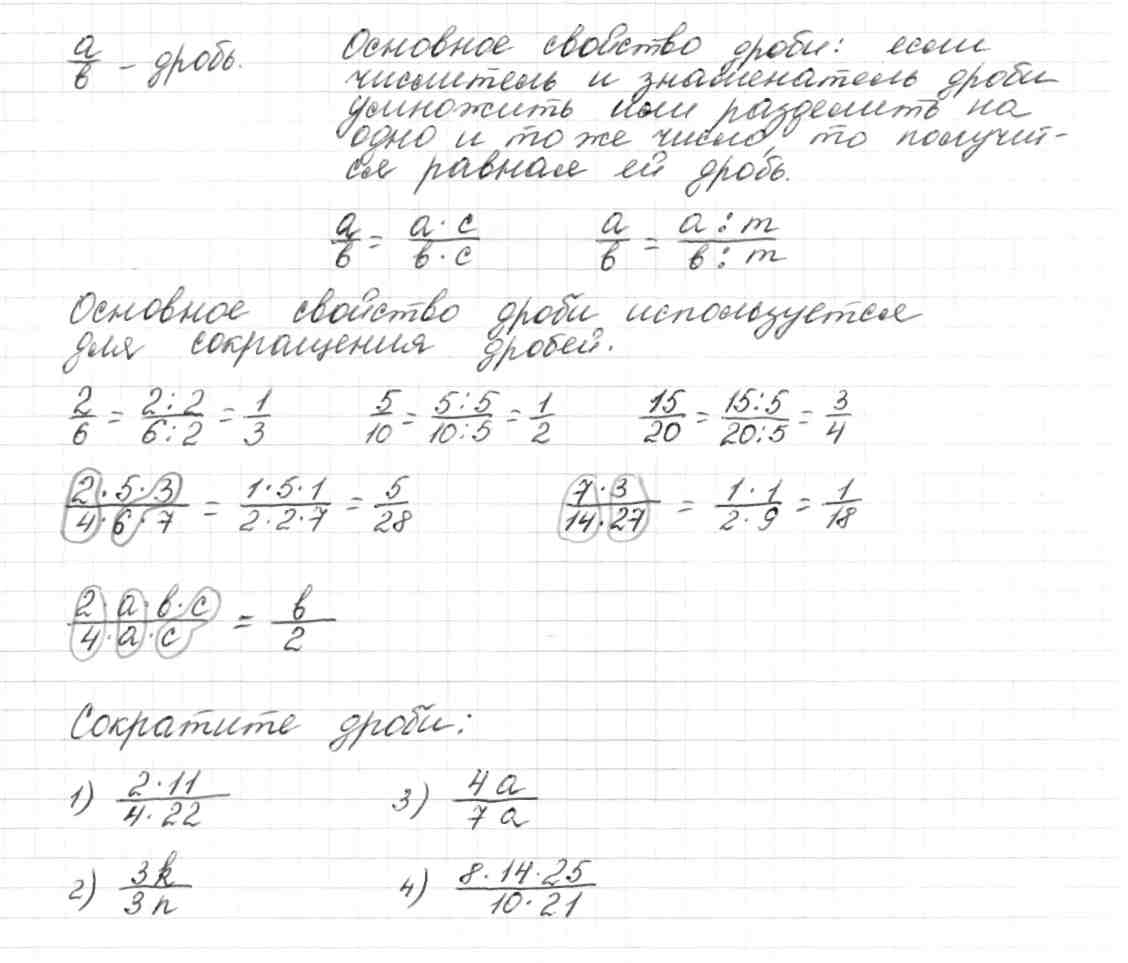 a/в – дробь.
Основное свойство дроби: если
числитель и знаменатель дроби
умножить или разделить на
одно и то же число, то получит-
ся равная ей дробь.
a/в = a·c/в·c   a/в = a:m/в:m
Основное свойство дроби используется
для сокращения дробей.
2/6 = 2:2/6:2 = 1/3   5/10 = 5:5/10:5 = 1/2   15/20 = 15:5/20:5 = 3/4
2·5·3/4·6·7 = 1·5·1/2·2·7 = 5/28   7·3/14·27 = 1·1/2·9 = 1/18
2·a·в·c/4·a·c = в/2
Сократите дроби:
1) 2·11/4·22   3) 4a/7a
2) 3k/3n   4) 8·14·25/10·21